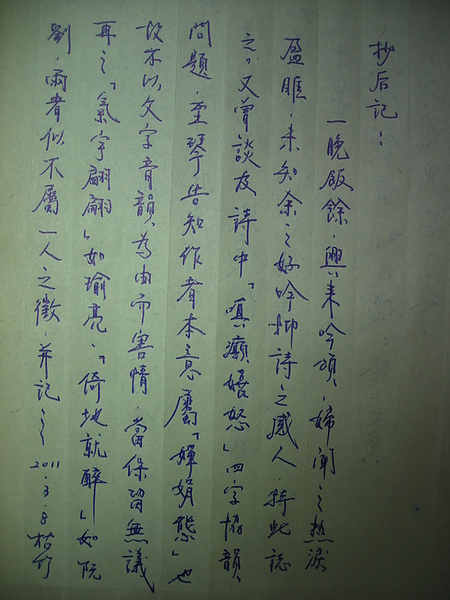 抄后记:
一晚飯餘,興来吟頌,婦闻之热淚
盈眶,未知余之好吟抑詩之感人,特此誌
之。又曾談友詩中「嗔癲嬉怒」四字協韻
問題,重琴告知作者本意屬「嬋娟態」也
故不以文字音韻為由而害情,當保留無議
再之「氣宇翩翩」如瑜亮,「倚地就醉」如阮
劉,兩者似不屬一人之徵,并记之 2011.3.8 枯竹